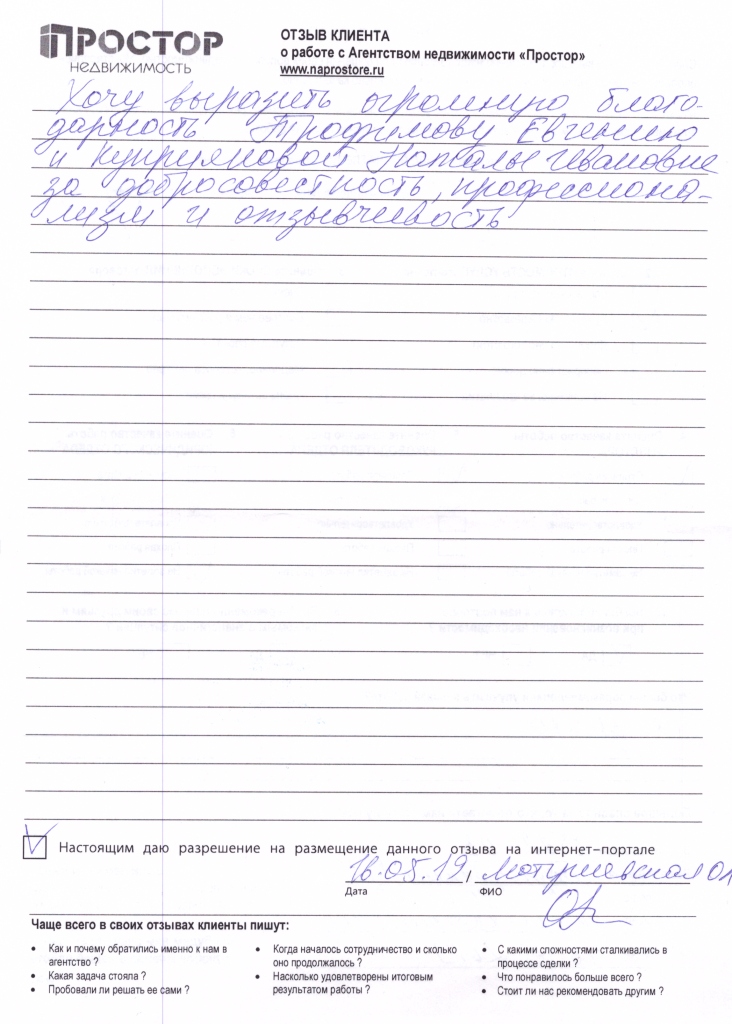 ПРОСТОР
НЕДВИЖИМОСТЬ
ОТЗЫВ КЛИЕНТА
о работе с Агентством недвижимости «Простор»
www.naprostore.ru
Хочу выразить огромную благо-
дарность Трофимову Евгению
и Куприяновой Наталье Ивановне
за добросовестность, профессиона-
лизм и отзывчивость
Настоящим даю разрешение на размещение данного отзыва на интернет–портале
16.05.19, Матушевская
Дата ФИО
Чаще всего в своих отзывах клиенты пишут:
• Как и почему обратились именно к нам в
агентство ?
• Какая задача стояла ?
• Пробовали ли решать ее сами ?
• Когда началось сотрудничество и сколько
оно продолжалось ?
• Насколько удовлетворены итоговым
результатом работы ?
• С какими сложностями сталкивались в
процессе сделки ?
• Что понравилось больше всего ?
• Стоит ли нас рекомендовать другим ?